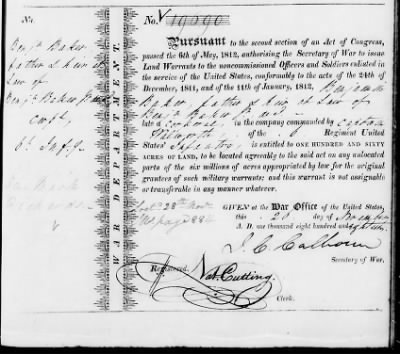 No.
Benj. Baker
father & heir at
Law of
Benj. Baker
6th Infy
WAR DEPARTMENT.
No.
Pursuant to the second section of an Act of Congress,
passed the 6th of May, 1812, authorising the Secretary of War to issue
Land Warrants to the noncommissioned Officers and Soldiers enlisted
in the service of the United States, conformably to the acts of the 24th of
December, 1811, and of the 11th of January, 1812, Benjamin
Baker, father & heir at Law of
Benj. Baker
late a Corporal in the company commanded by Captain
of the Regiment United
States' Infantry, is ENTITLED TO ONE HUNDRED AND SIXTY
ACRES OF LAND, to be located agreeably to the said act on any unlocated
parts of the six millions of acres appropriated by law for the original
grantees of such military warrants; and this warrant is not assignable
or transferable in any manner whatever.
GIVEN at the War Office of the United States,
this 20 day of November
A. D. one thousand eight hundred and eighteen.
J. C. Calhoun
Secretary of War.
Registered.
Nat. Cutting.
Clerk.